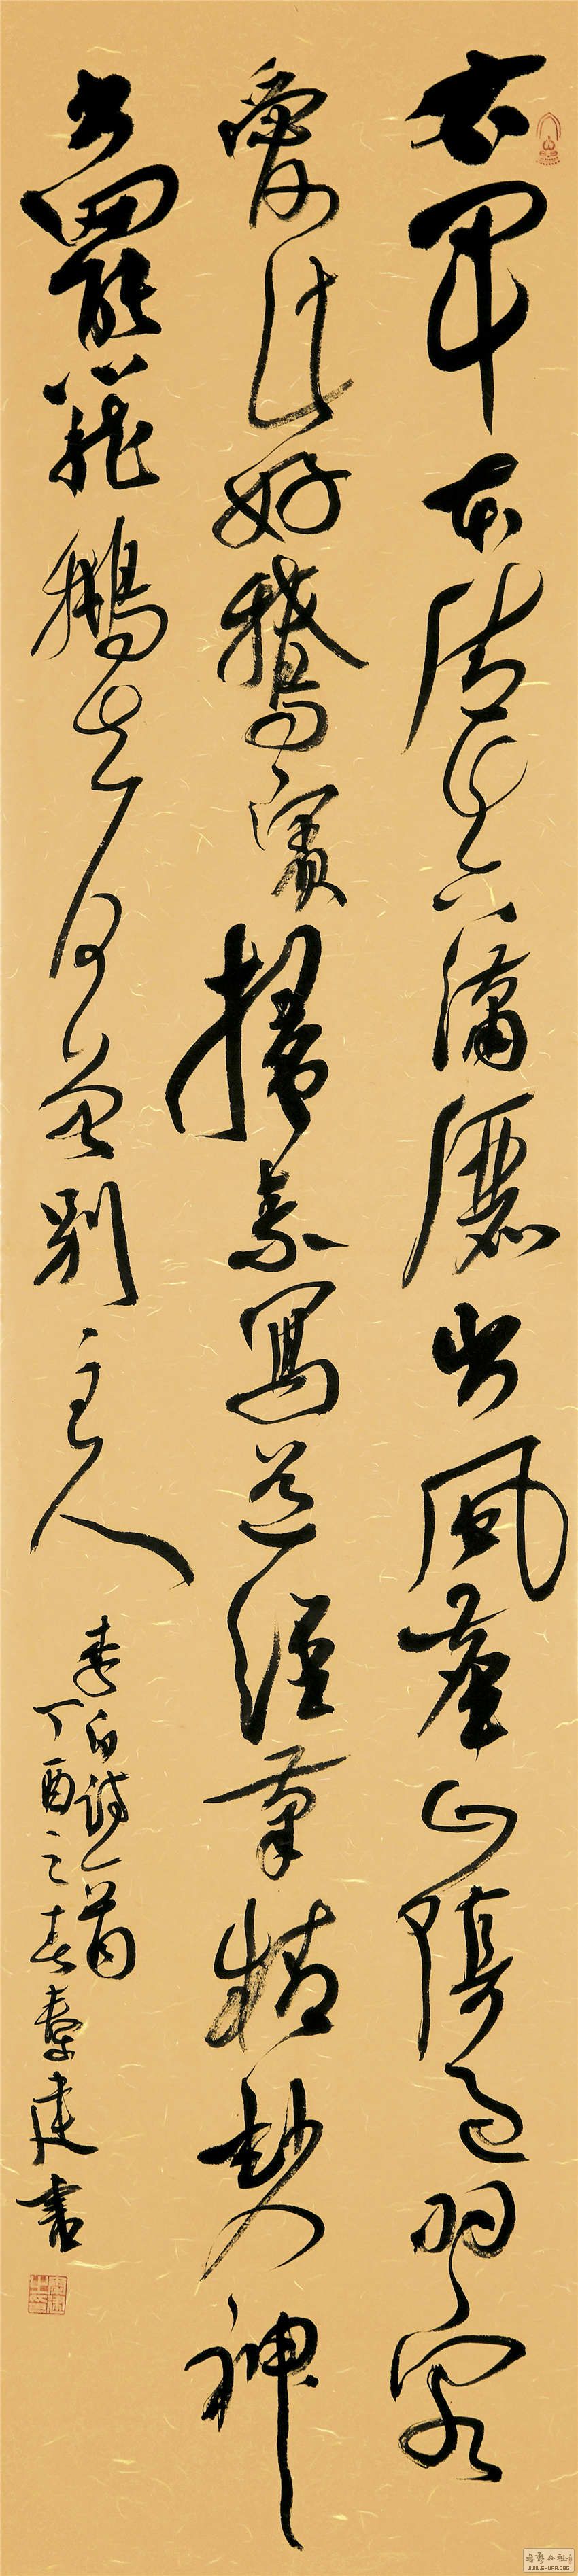 右軍本清真瀟灑出風塵山陰過羽客
愛此好鵝賓掃素寫道經筆精妙入神
書罷籠鵝去何曾別主人
李白詩一首
丁酉之春建書
WWW.SHUFR.ORG